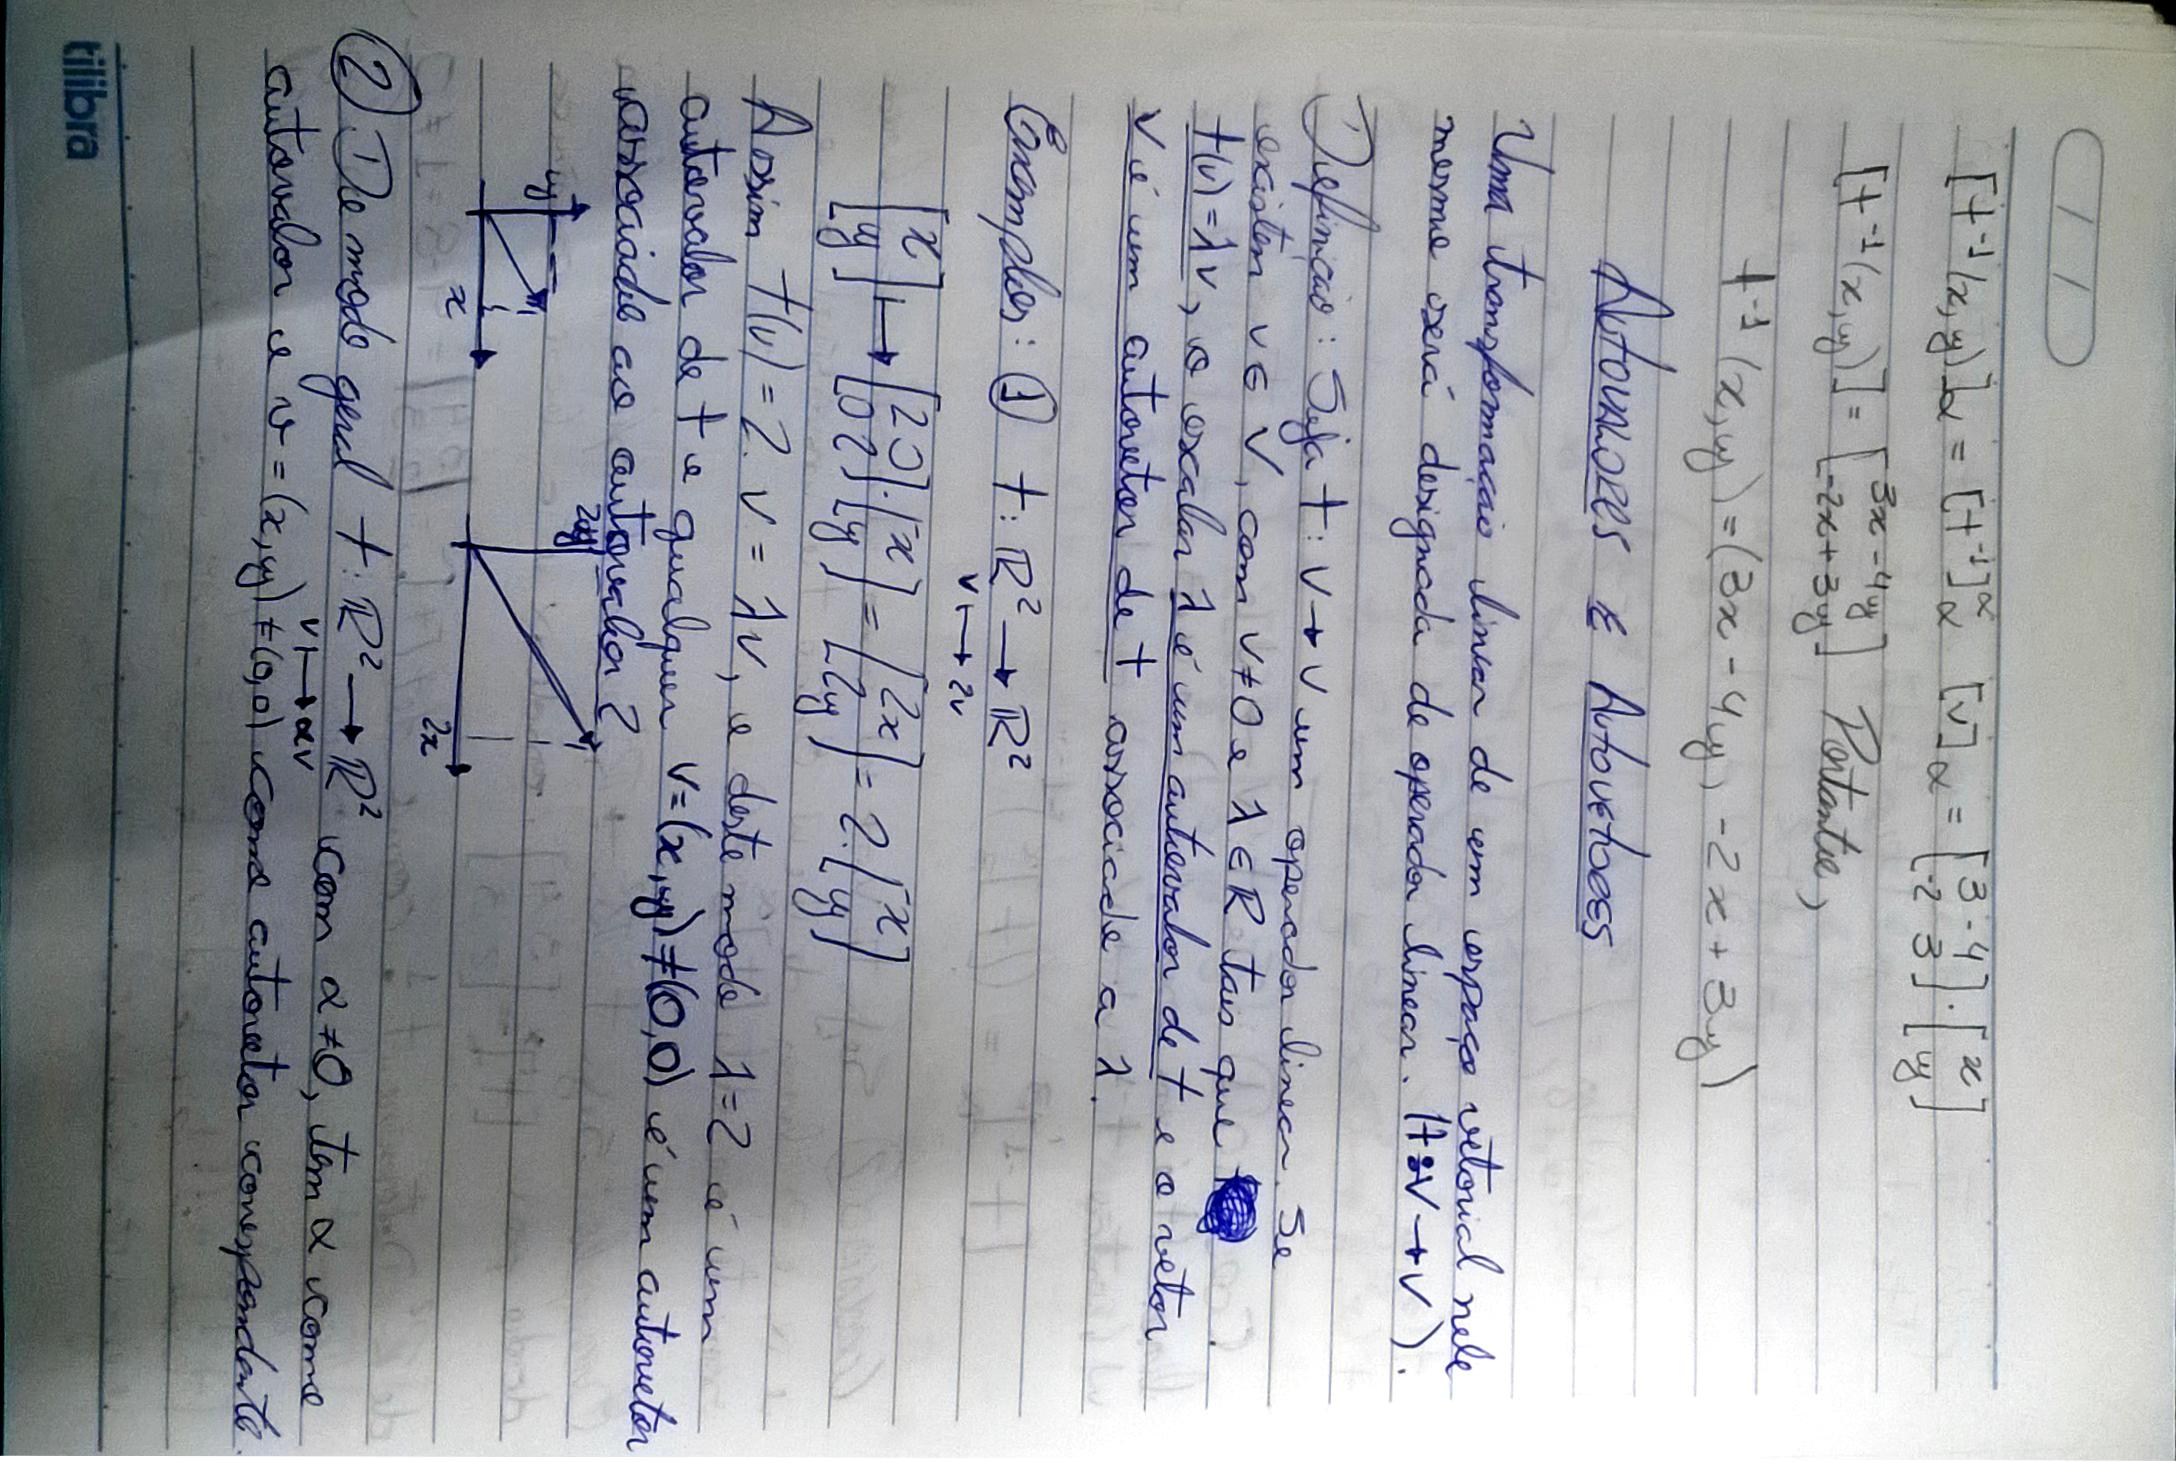 [t⁻¹(x,y)]α = [t⁻¹]αα [v]α = [3 -4; -2 3] · [x; y]
[t⁻¹(x,y)] = [3x-4y; -2x+3y] Portanto,
t⁻¹(x,y) = (3x - 4y, -2x + 3y)
AutoVALORES E AutovetoRES
Uma transformação linear de um espaço vetorial nele
mesmo será designada de operador linear. (t: V → V).
Definição: Seja t: V → V um operador linear. Se
existem v ∈ V, com v ≠ 0 e λ ∈ R tais que
t(v) = λv, o escalar λ é um autovalor de t e o vetor
v é um autovetor de t associado a λ.
Exemplos: ① t: ℝ² → ℝ²
v ↦ 2v
[x; y] ↦ [2 0; 0 2] · [x; y] = [2x; 2y] = 2. [x; y]
Assim t(v) = 2. v = λv, e deste modo λ = 2 é um
autovalor de t e qualquer v = (x,y) ≠ (0,0) é um autovetor
associado ao autovalor 2.
y 2y
x 2x
② De modo geral t: ℝ² → ℝ² com α ≠ 0, tem α como
v ↦ αv
autovalor e v = (x,y) ≠ (0,0) como autovetor correspondente.
tilibra